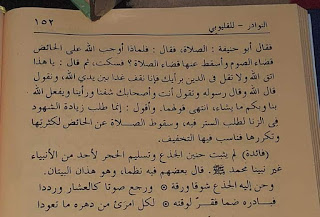 النوادر - للقليوبي ١٥٢
فقال أبو حنيفة : الصلاة، فقال : فلماذا أوجب الله على الحائض
قضاء الصوم وأسقط عنها قضاء الصلاة؟ فسكت، ثم قال : يا هذا
اتق الله ولا تقل في الدين برأيك فإنا نقف غدا بين يدي الله، ونقول
قال الله وقال رسوله وتقول أنت وأصحابك سمعنا ورأينا ويفعل الله
بنا وبكم ما يشاء، انتهى قولهما. وأقول : إنما طلب زيادة الشهود
في الزنا لطلب الستر فيه، وسقوط الصلاة عن الحائض لكثرتها
وتكررها فناسب فيها التخفيف.
(فائدة) لم يثبت حنين الجذع وتسليم الحجر لأحد من الأنبياء
غير نبينا محمد ﷺ، قال بعضهم فيه نظما، وهو هذان البيتان.
وحن إليه الجذع شوقا ورقة ⊙ ورجع صوتا كالعشار ورددا
فبادره ضما فقر لوقته ⊙ لكل امرئ من دهره ما تعودا